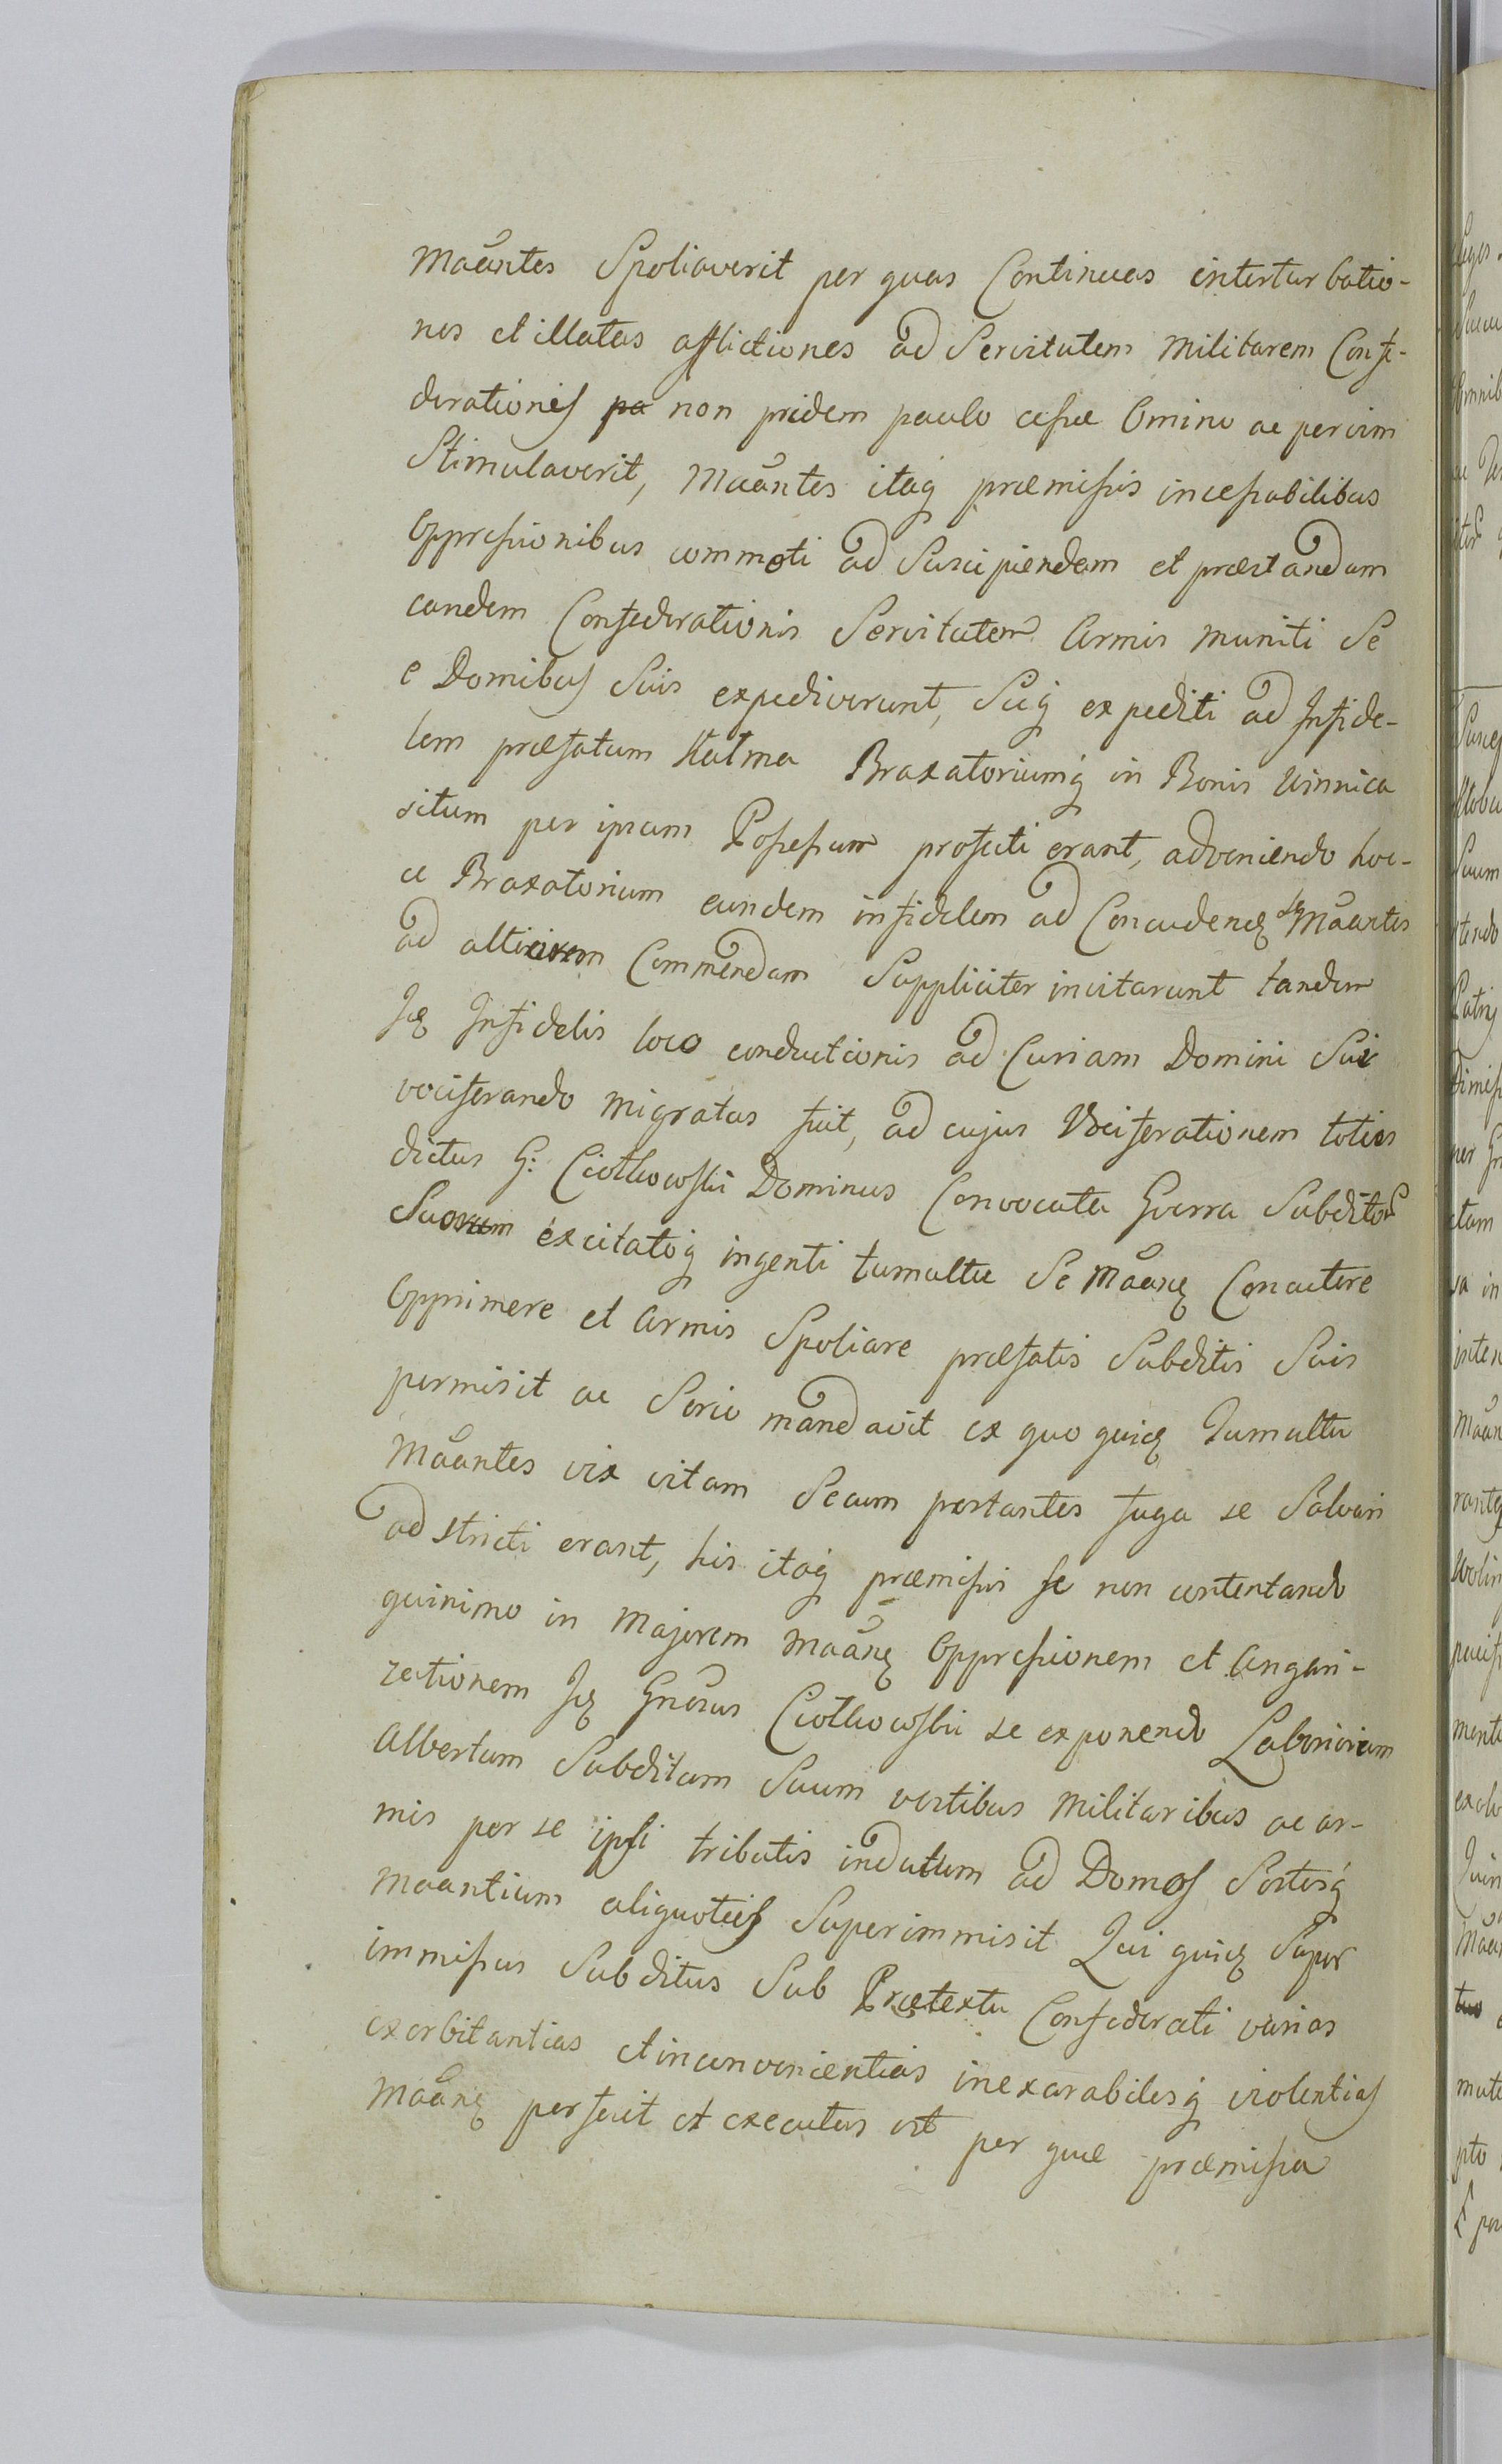 Maãntes Spoliaverit per quas Continuas inturturbatio-
nes et illatas afflictiones ad Servitutem Militarem Confæ-
derationis non pridem paulo cessæ Omino ac per vim
Stimulaverit, Maãntes itaq præmissis incessabilibus
Oppressionibus commoti ad Suscipiendam et præstandam
eandem Confæderationis Servitutem Armis muniti Se
e Domibus Suis expediverunt, Sicq expediti ad Infide-
lem præfatum Katma Braxatoriumq in Bonis Winnica
situm per ipsum Possessum profecti erant, adveniendo hoc-
ce Braxatorium eundem infidelem ad Concudend se Maãntes
ad Commendam Suppliciter invitarunt tandem
Is Infidelis loco conductionis ad Curiam Domini Sui
vociferando migratus fuit, ad cujus Vociferationem toties
dictus G: Ciolkowski Dominus Convocata Gvarra Subditor
Suorum excitatoq ingenti tumultu Se Maãn Concutere
Opprimere et Armis Spoliare præfatis Subditis Suis
permisit ac Serio mandavit ex quo quid Tumultu
Maãntes vix vitam Secum portantes fuga se Salvari
adstricti erant, his itaq præmissis se non contentando
quinimo in Majorem Maãn Oppressionem et Angari-
zationem Id Gnosus Ciolkowski se exponendo Laboriosum
Albertum Subditum Suum vestibus Militaribus ac ar-
mis per se ipsi tributis indutum ad Domos Sortesq
Maantium aliquoties Superimmisit Qui quid Super
immissus Subditus Sub Prætextu Confæderati varias
exorbitantias et inconvenientias inexarabilesq violentias
Maãn perfecit et executus est per quæ præmissa